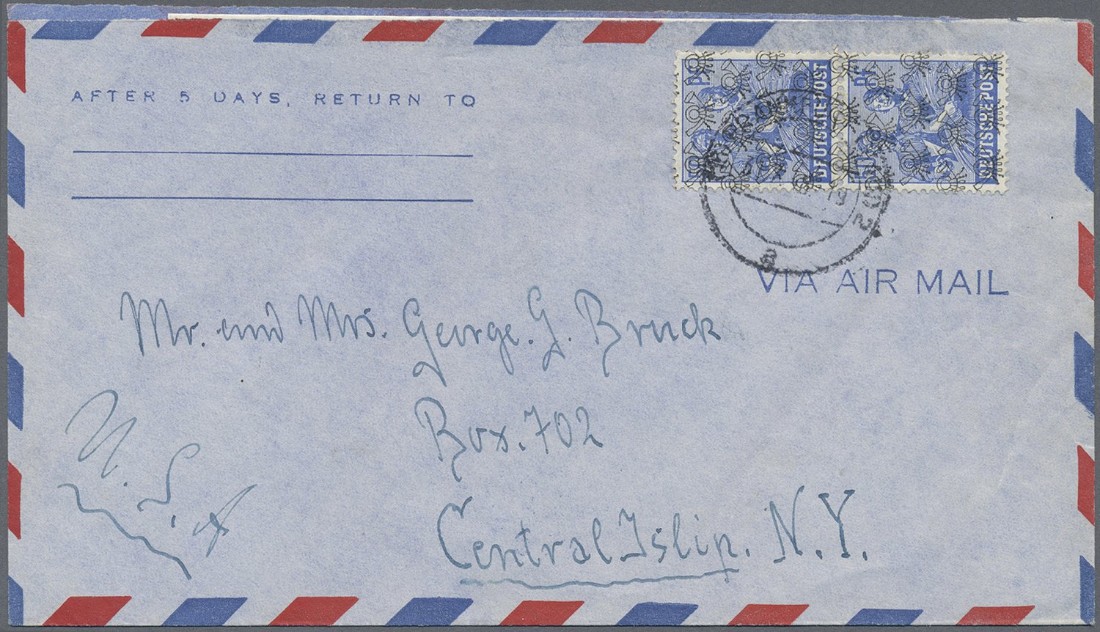 AFTER 5 DAYS, RETURN TO
DEUTSCHE POST
DEUTSCHE POST
VIA AIR MAIL
Mr. und Mrs. George. G. Bruck
Box. 702
Central Islip. N.Y.
U.S.A